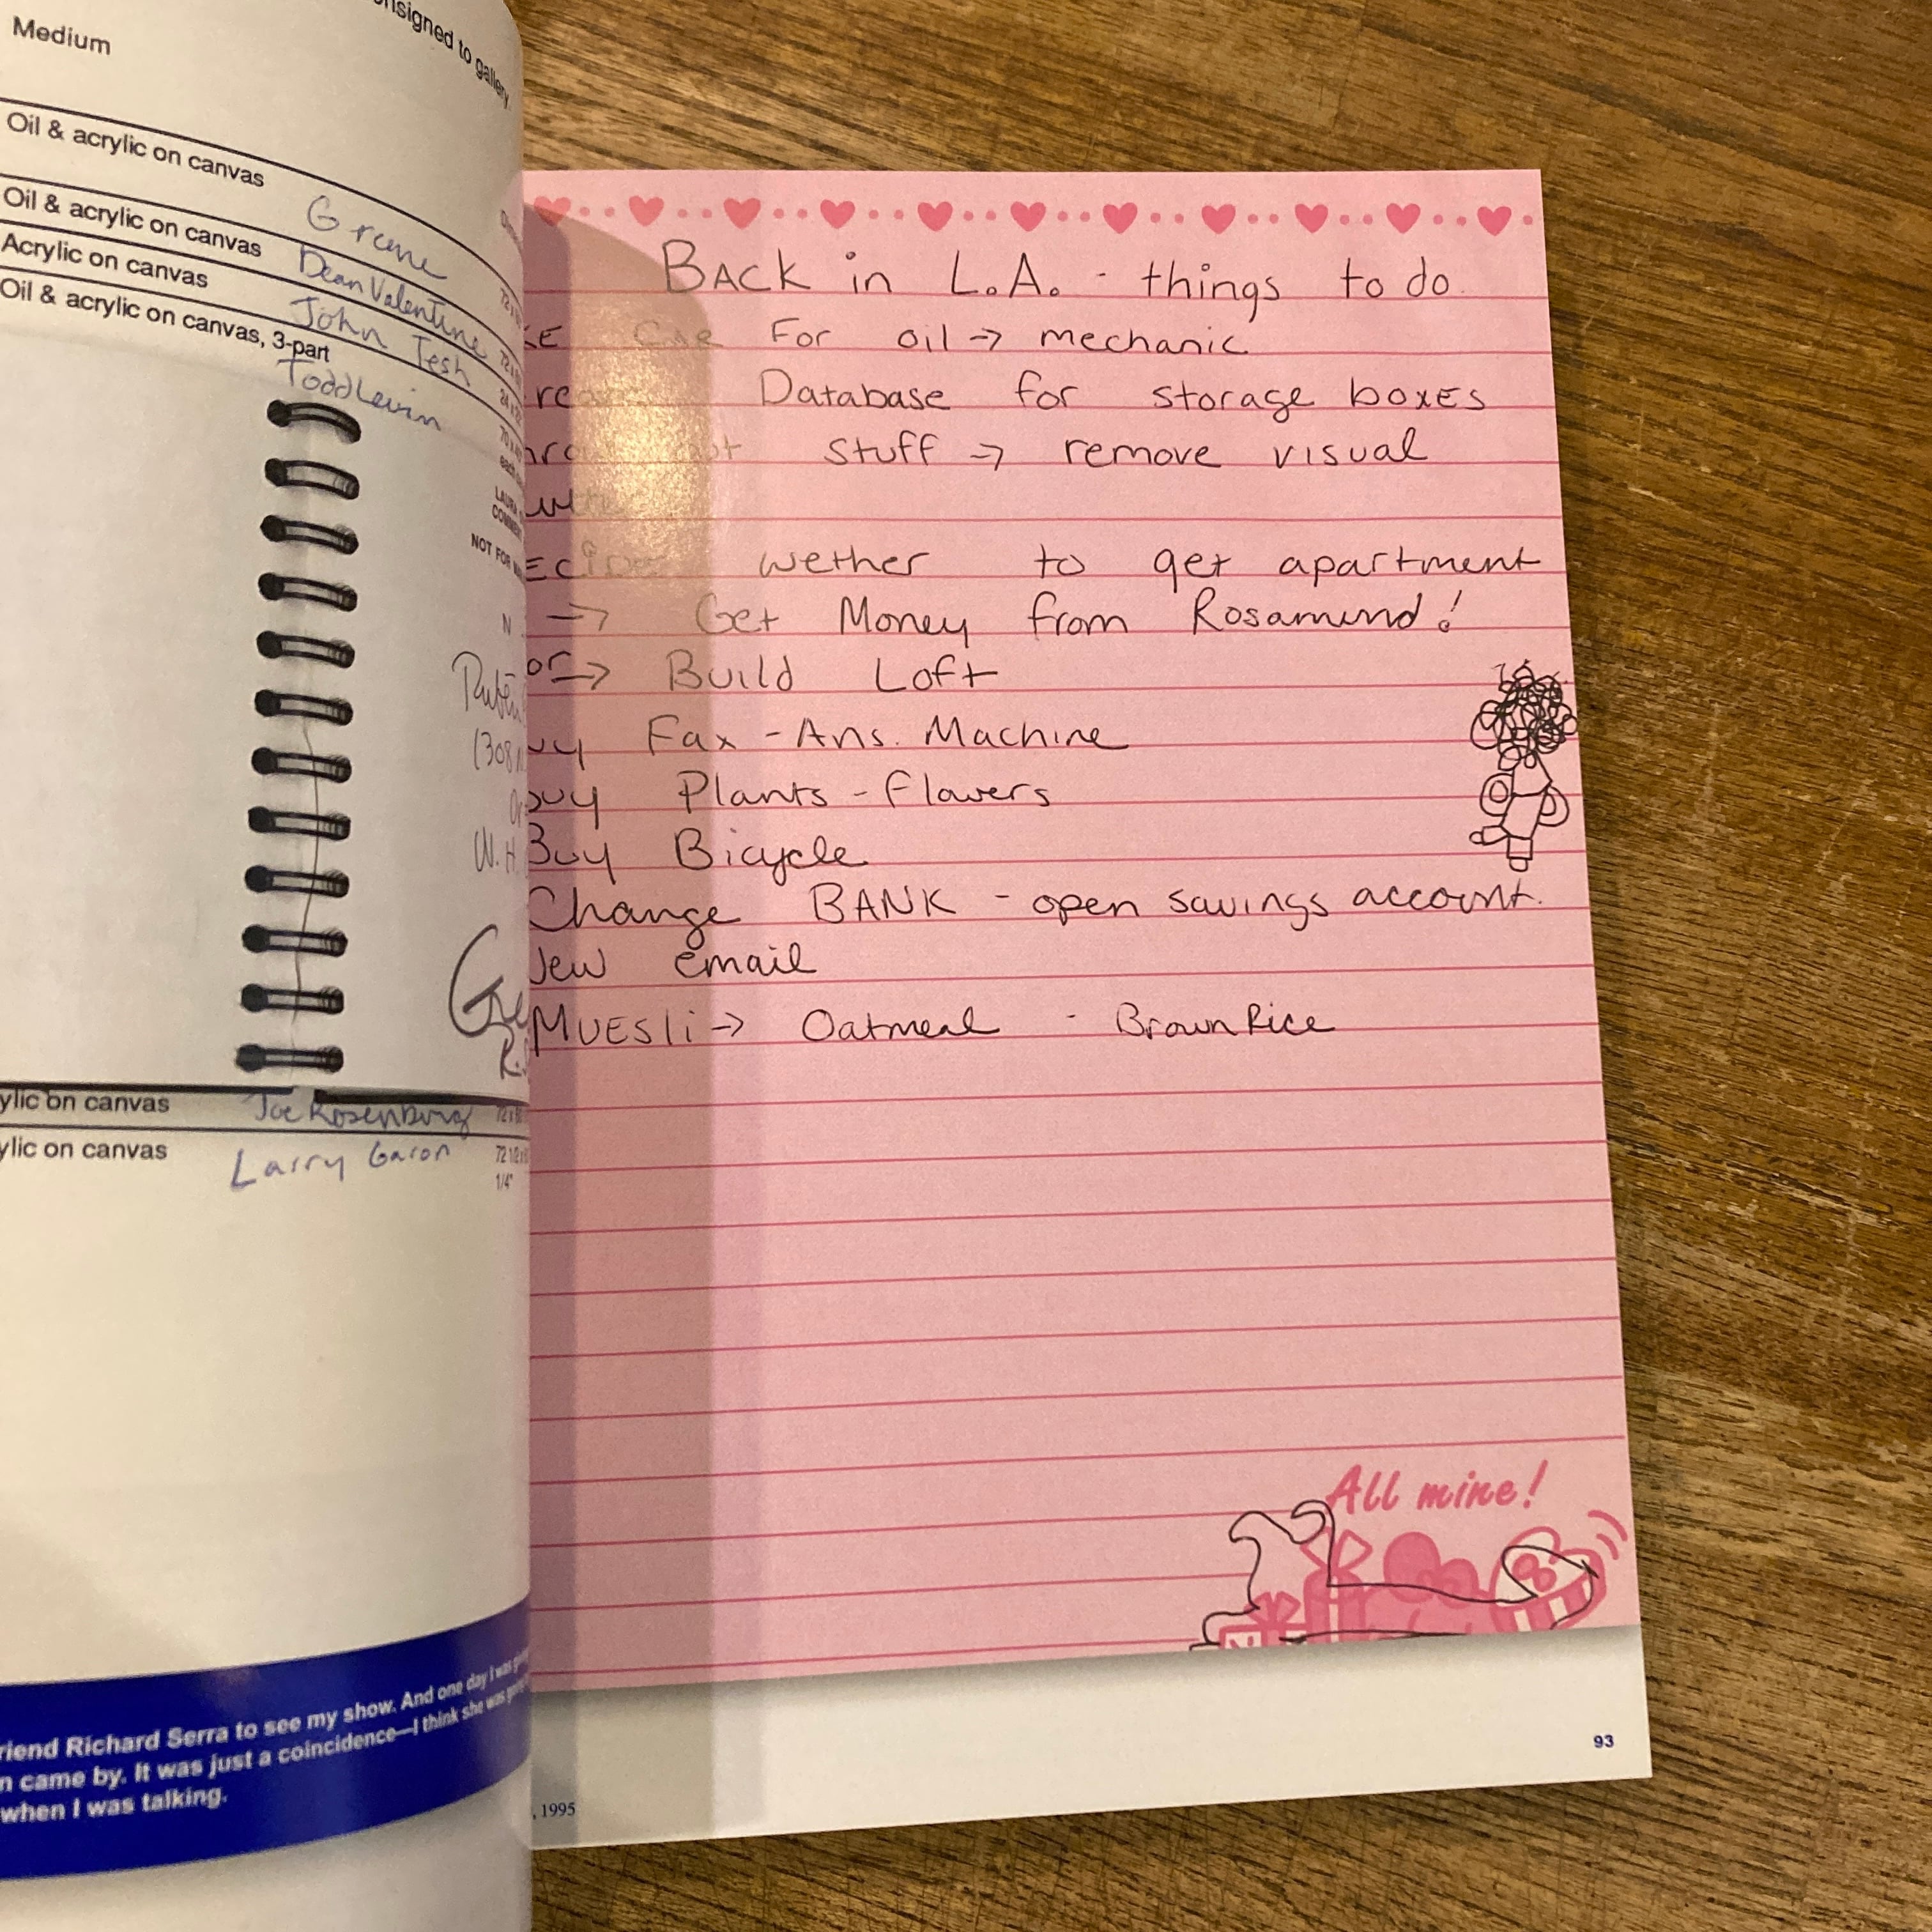 Medium
nsigned to gallery
Oil & acrylic on canvas
Greene
Oil & acrylic on canvas
Dean Valentine
Acrylic on canvas
John Tesh
Oil & acrylic on canvas, 3-part
Todd Levin
NOT FOR
(308 N.
W. H.
ylic on canvas
Joe Rosenburg
ylic on canvas
Larry Garon
1/4"
riend Richard Serra to see my show. And one day I was
n came by. It was just a coincidence—I think she was
when I was talking.
BACK in L.A. - things to do
KE Car For oil → mechanic
Database for storage boxes
out stuff → remove visual
ecide wether to get apartment
→ Get Money from Rosamund!
or → Build Loft
uy Fax - Ans. Machine
buy Plants - Flowers
Buy Bicycle
Change BANK - open savings account.
New email
MUESli → Oatmeal - Brown Rice
All mine!
93
, 1995